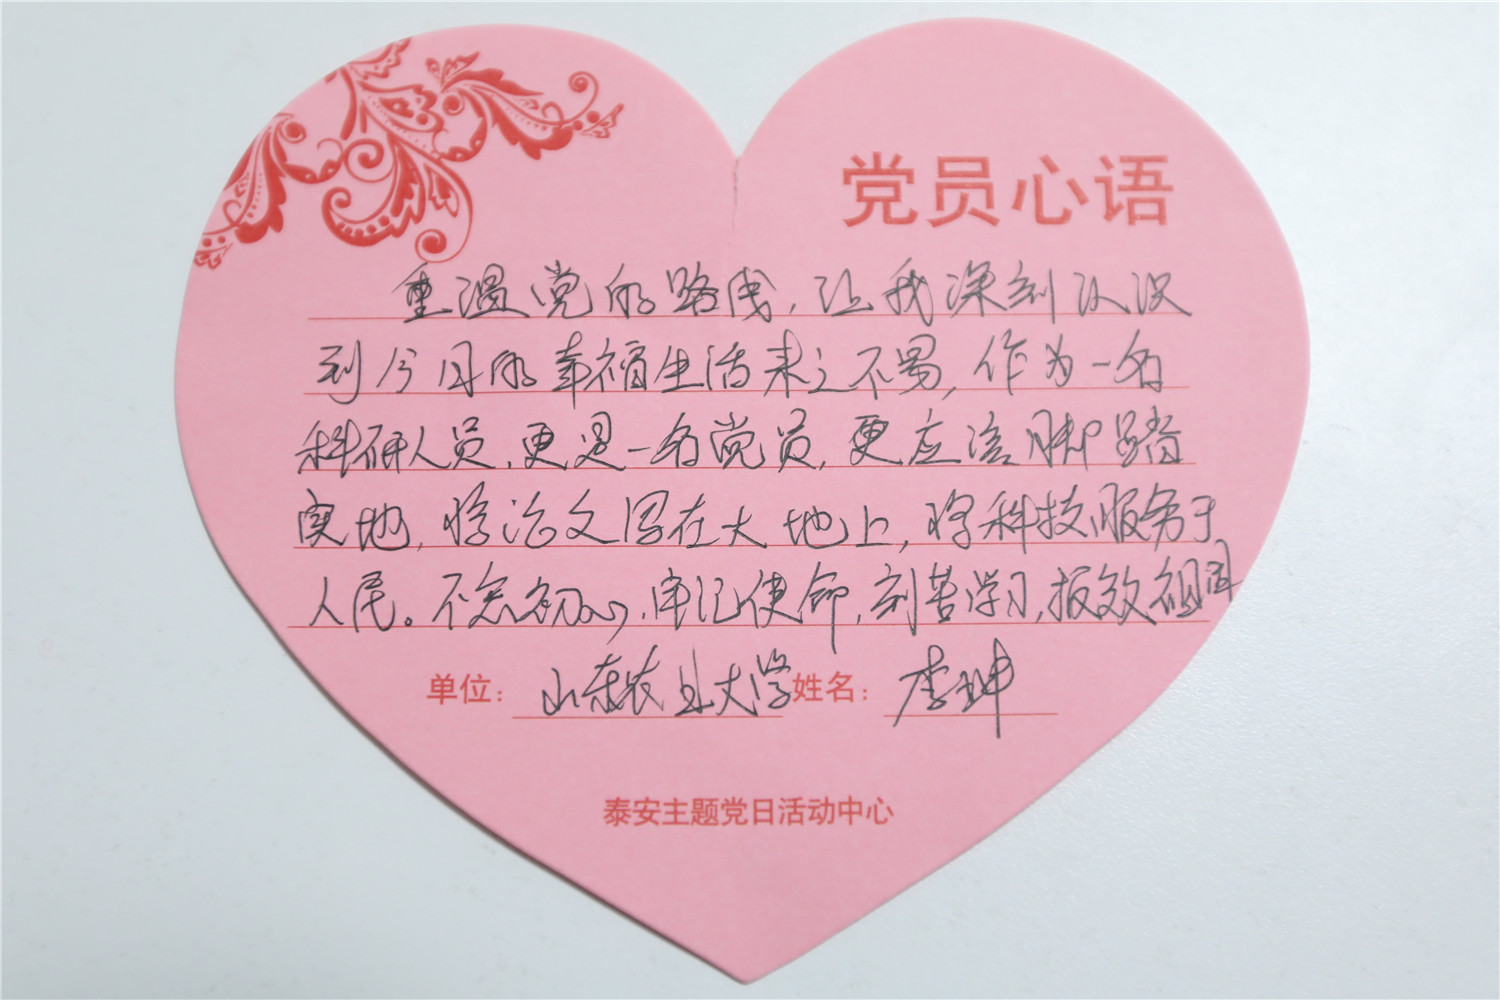 党员心语
重温党的路线，让我深刻认识
到今日的幸福生活来之不易，作为一名
科研人员，更是一名党员，更应该脚踏
实地，将论文写在大地上，将科技服务于
人民。不忘初心，牢记使命，刻苦学习，报效祖国
单位：山东农业大学 姓名：李坤
泰安主题党日活动中心